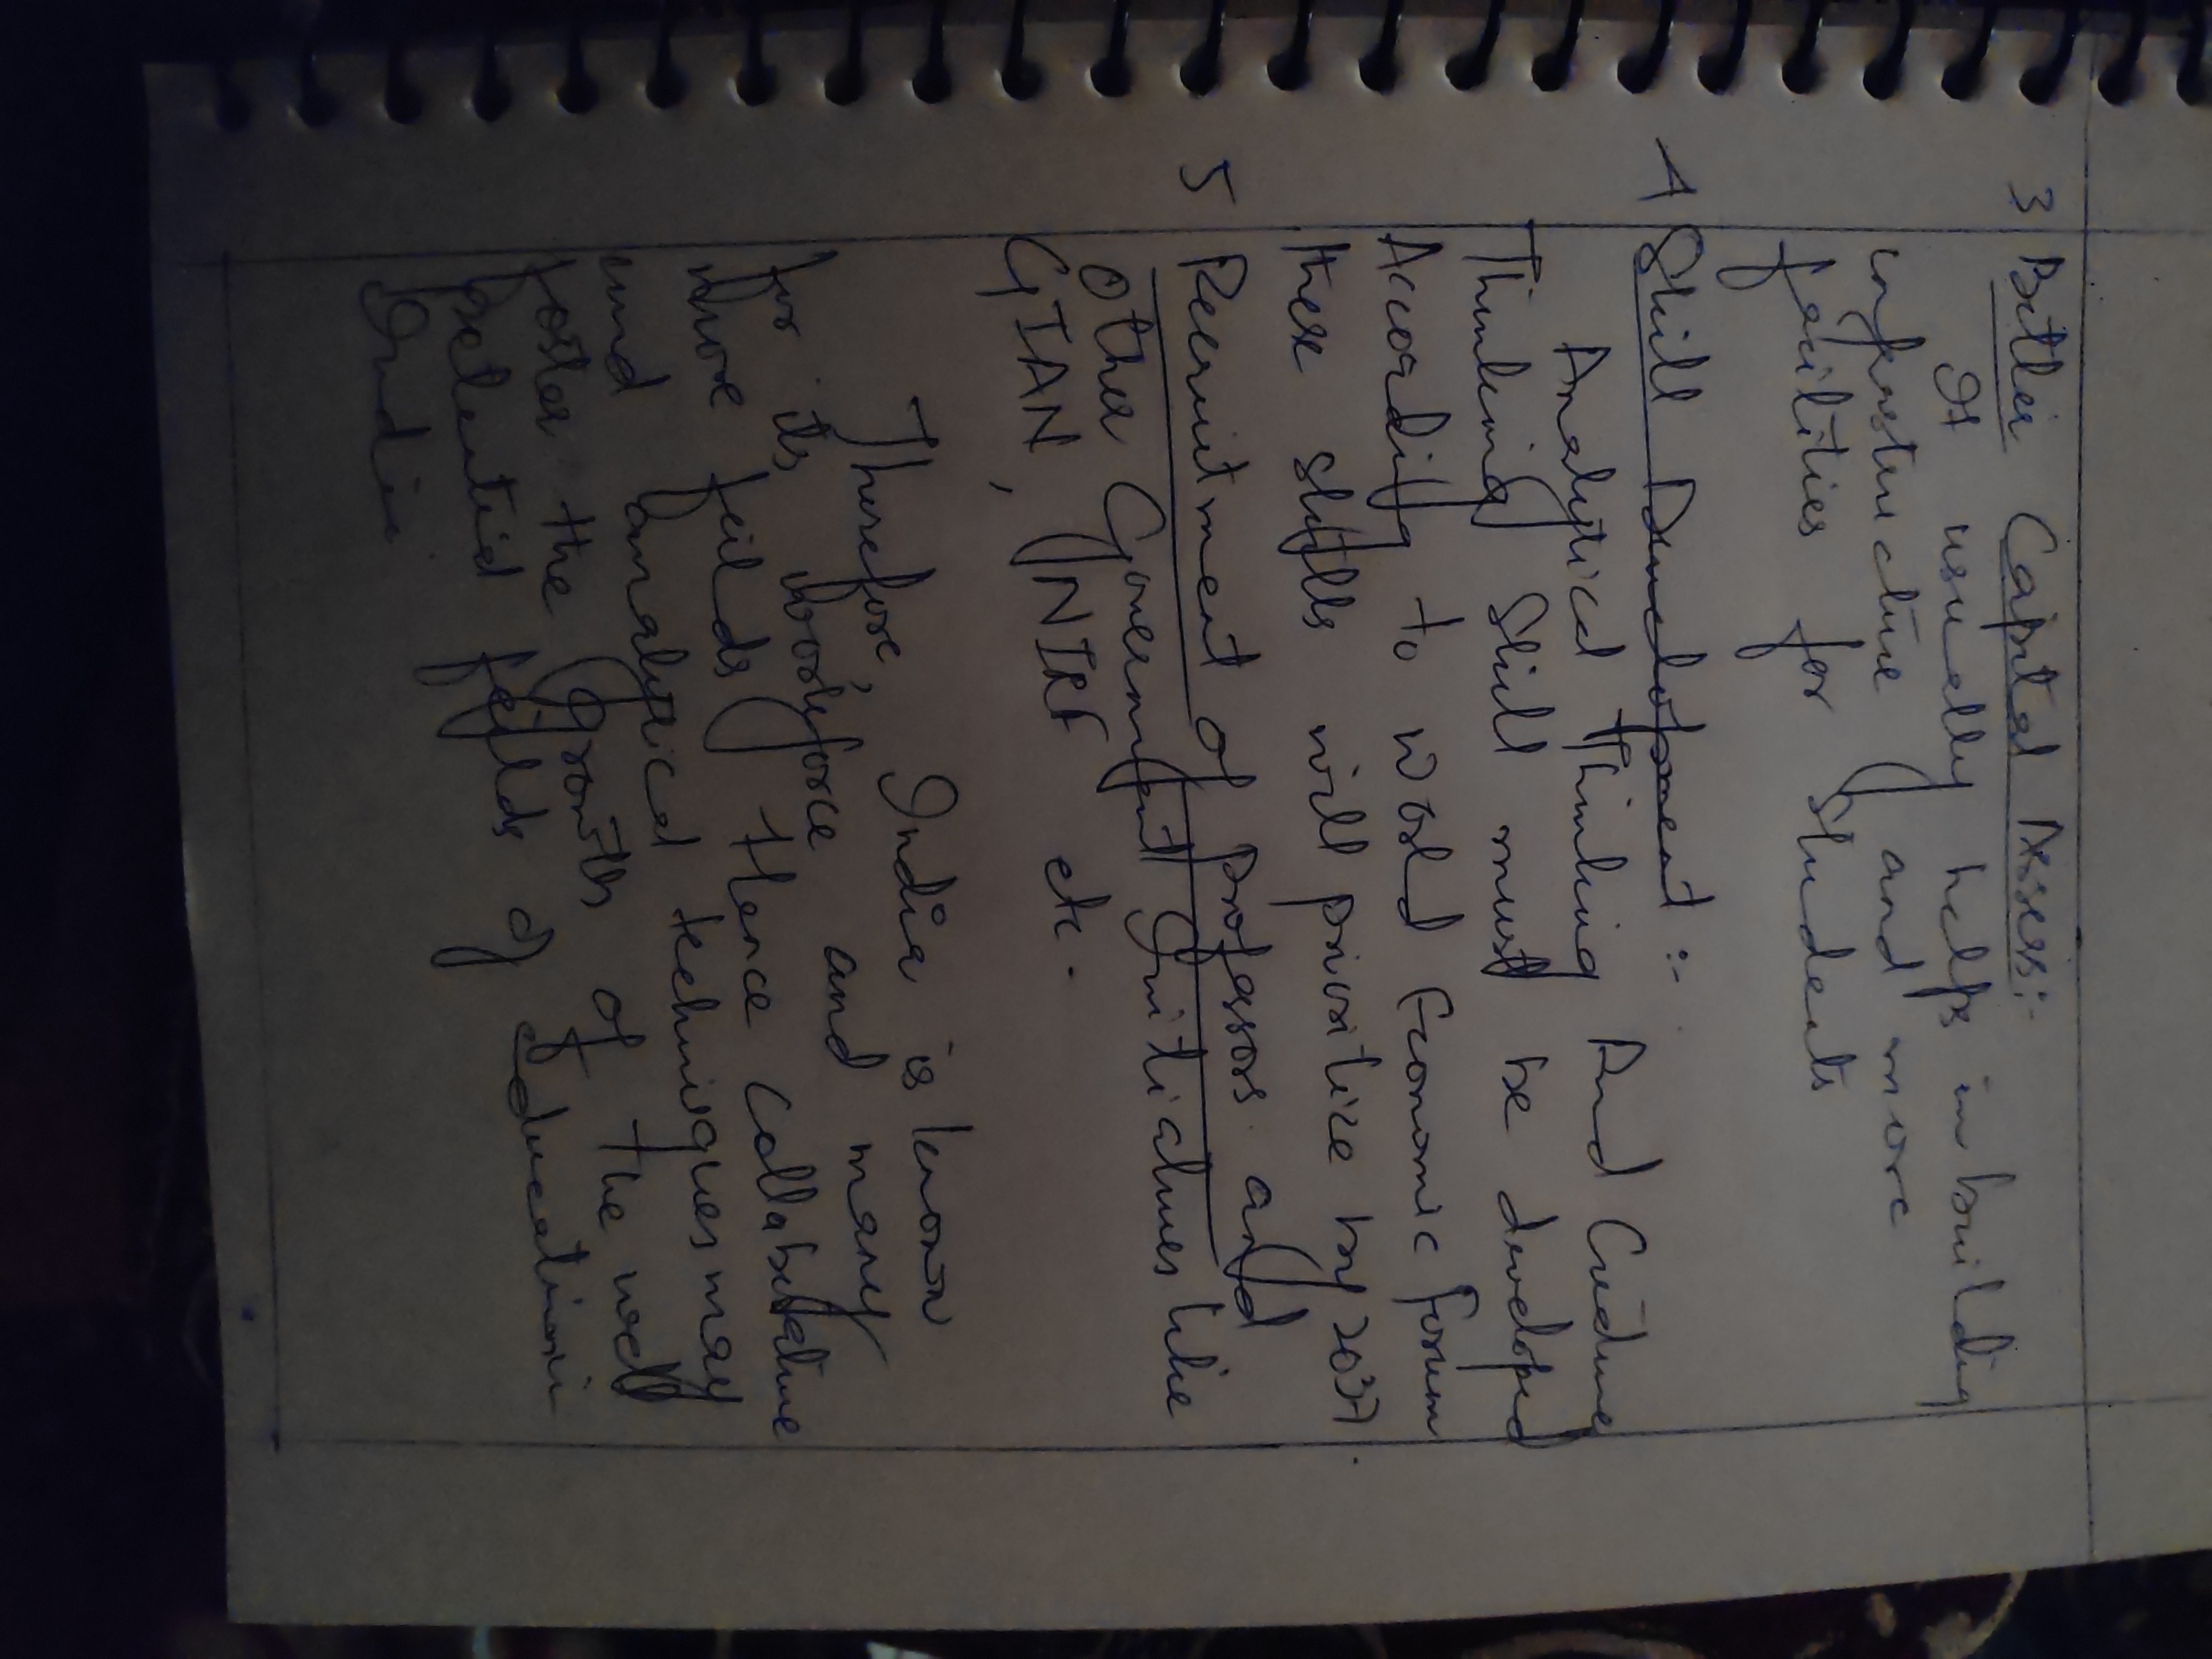 3 Better Capital Assess:-
It usually helps in building
infrastructure and more
facilities for Students
4 Skill Development :-
Analytical Thinking And Creative
Thinking Skill must be developed
According to World Economic Forum
these skills will prioritize by 2037.
5 Recruitment of professors and
other Government Initiatives like
GIAN, NIRF etc.
Therefore, India is known
for its workforce and many
more feilds Hence Collaborative
and analytical techniques may
foster the Growth of the well
potential feilds of education in
India